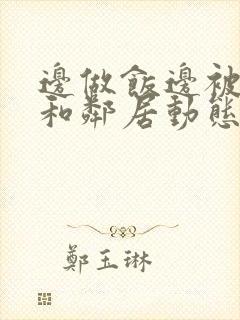 邊做飯邊被
和鄰居動態
鄭玉琳